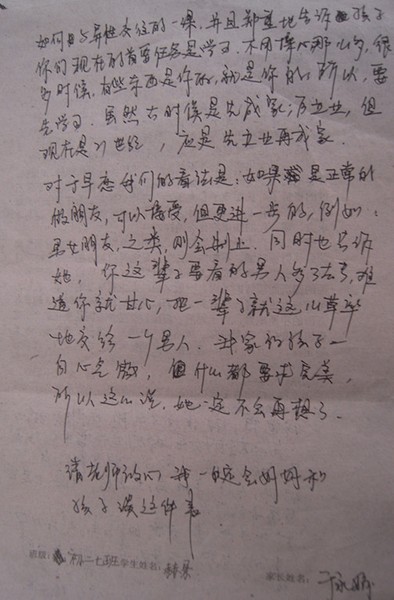 如何与异性交往的一课,并且郑重地告诉孩子
你们现在的首要任务是学习,不用操心那么多,很
多时候,有些东西是你的,就是你的,所以,要
先学习.虽然古时候是先成家,后立业,但
现在是21世纪,应是先立业再成家.
对于早恋我们的看法是:如果是正常的
做朋友,可以接受,但更进一步的,例如:
男女朋友,之类,则会制止.同时也告诉
她,你这辈子要看的男人多了去了,难
道你就甘心,把一辈子就这么草率
地交给一个男人.我家的孩子一
向心气傲,但什么都要求完美,
所以这么说,她一定不会再想了.
请老师放心,我一定会好好和
孩子谈这件事
班级:初二十班学生姓名:
家长姓名: